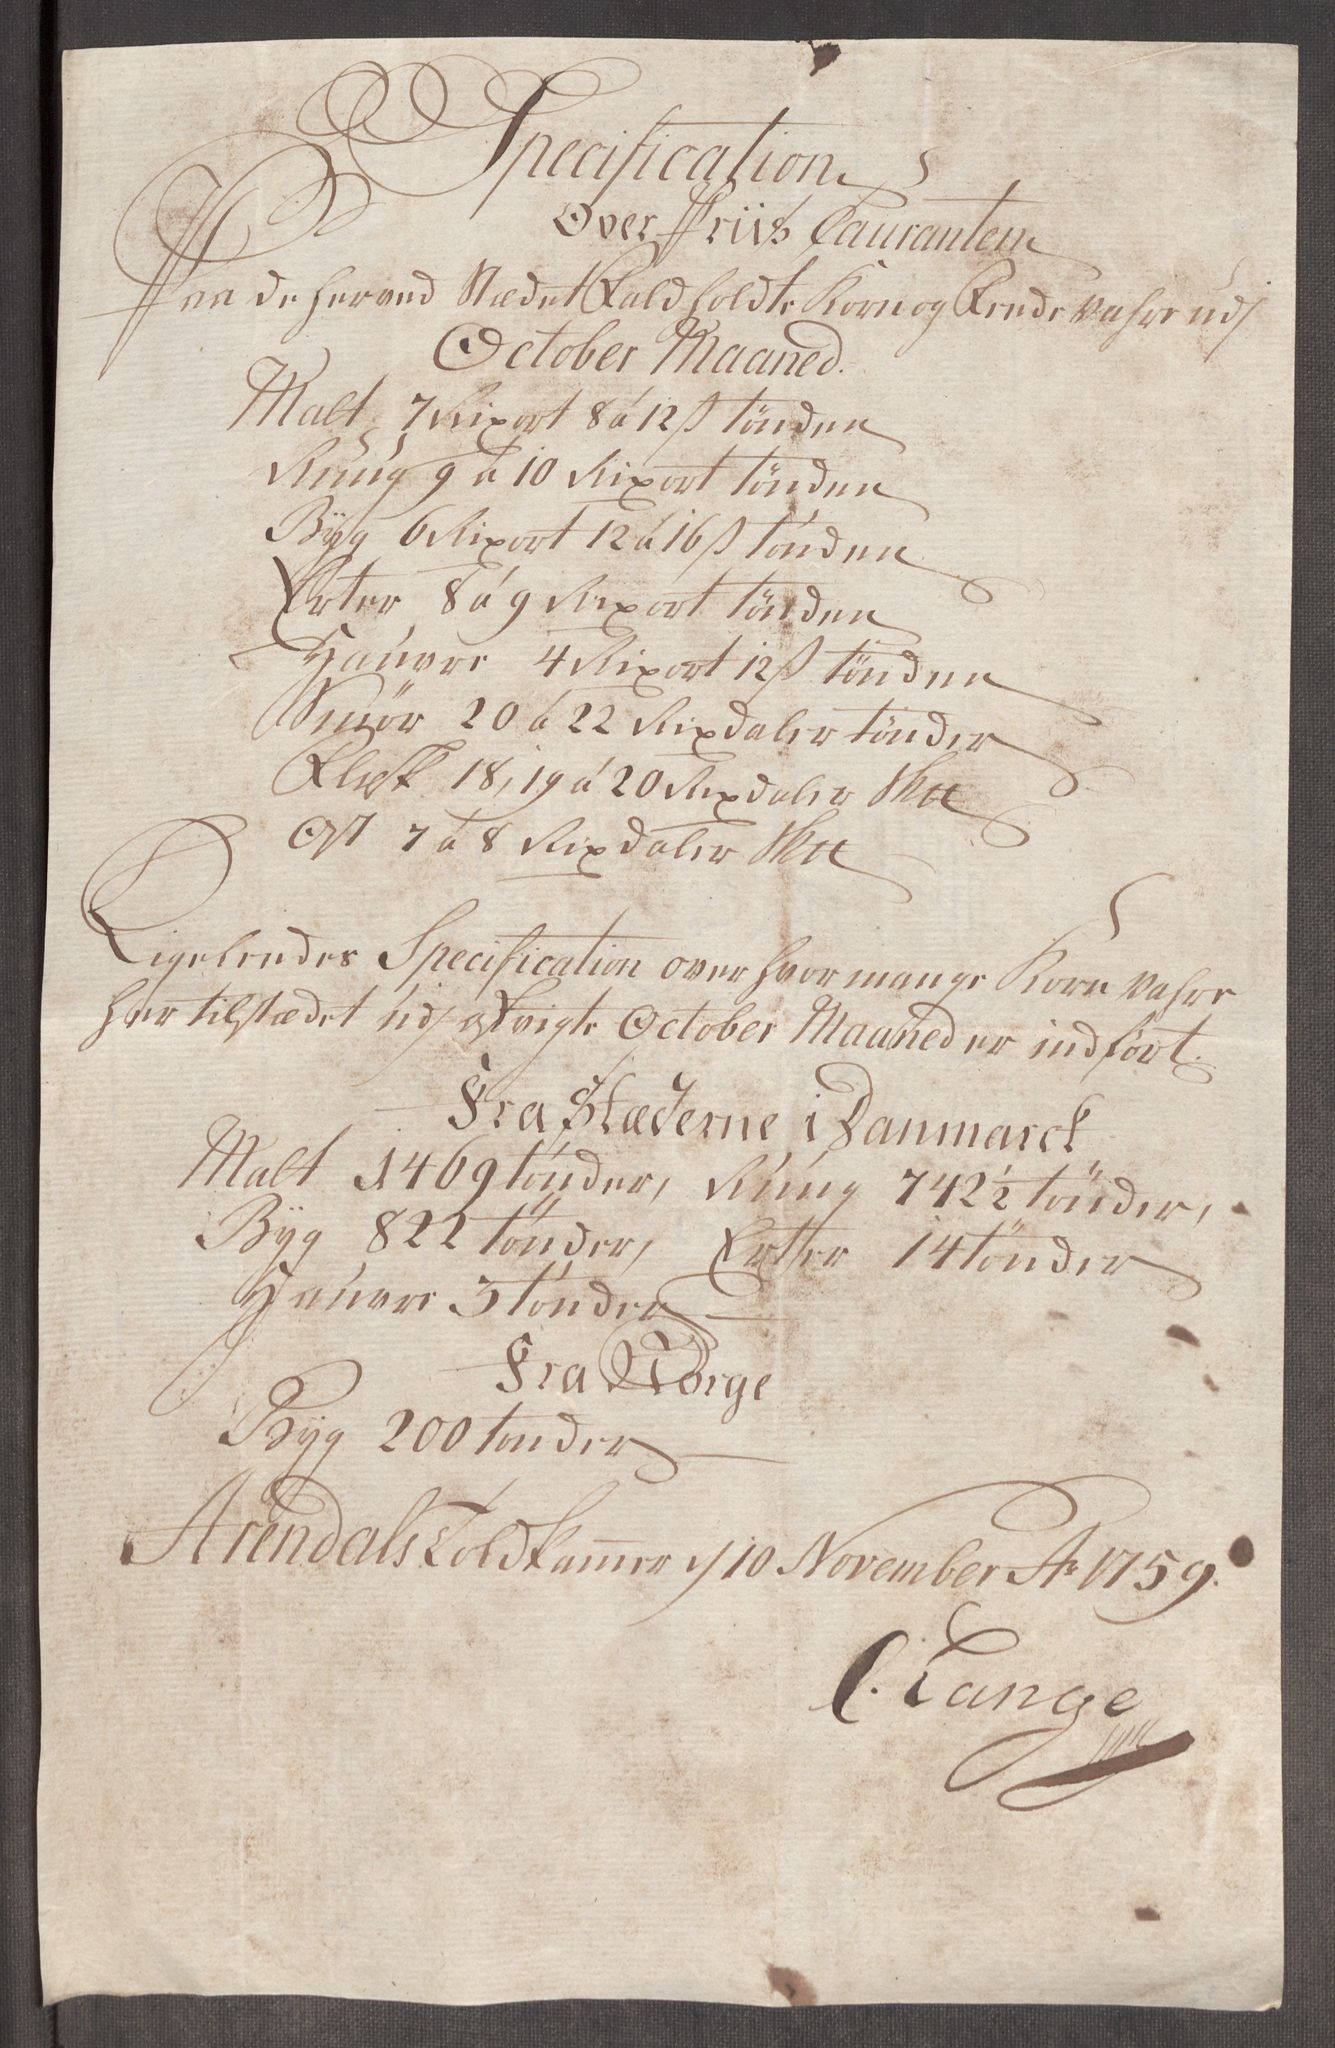 Specification
Over Priis Couranten
Paa de herved Stædet Faldholdte Korn og Fende Vahre udj
October Maaned.
Malt 7 Rixort 8 à 12 ß tönden
Rúúg 9 à 10 Rixort tönden
Byg 6 Rixort 12 à 16 ß tönden
Erter 8 à 9 Rixort tönden
Haúvre 4 Rixort 12 ß tönden
Smör 20 à 22 Rixdaler tönder
Flesk 18, 19 à 20 Rixdaler Sk℔
Ost 7 à 8 Rixdaler Sk℔
Ligeledes Specification over hvor mange Korn Vahre
her til stædet údj afvigte October Maaned er indfört.
Fra Stæderne i Danmarck
Malt 1469 tönder, Rúúg 742½ tönder,
Byg 822 tönder, Erter 14 tönder
Haúvre 3 tönder
Fra Norge
Byg 200 tönder
Arendals Toldkammer d 10 November Ao 1759.
C. Lange